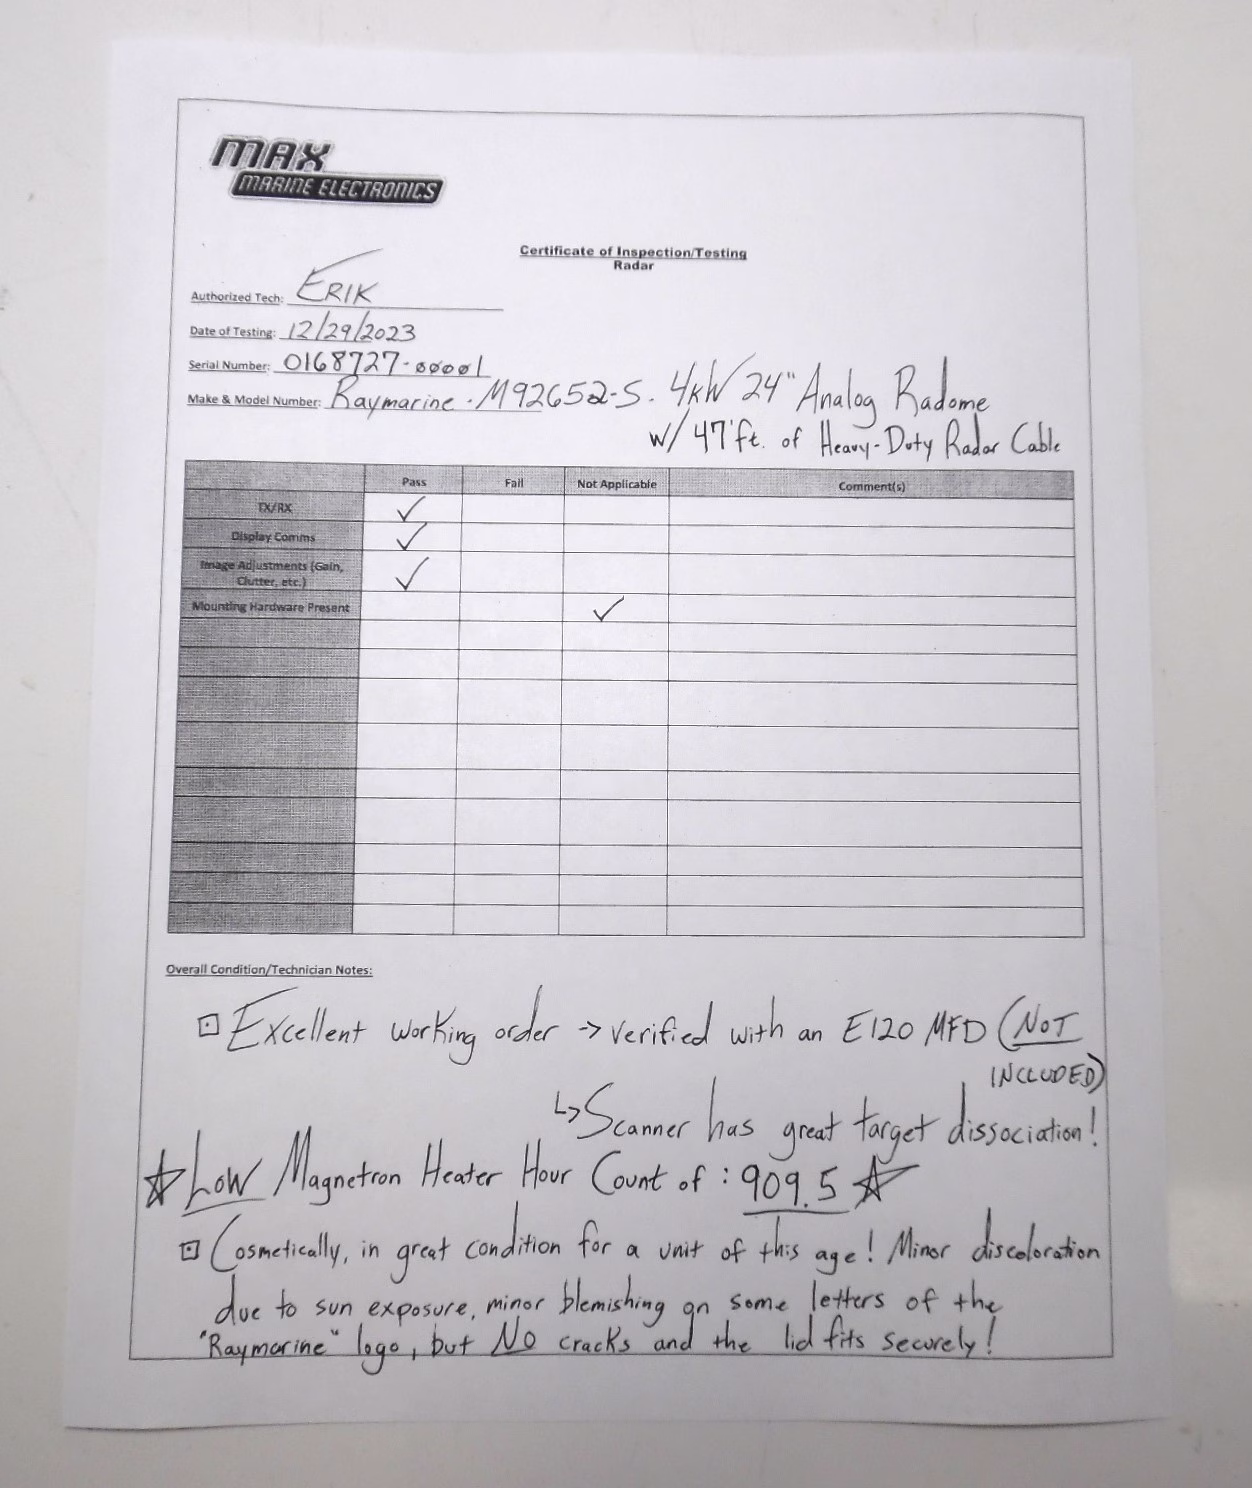 MAX
MARINE ELECTRONICS
Certificate of Inspection/Testing
Radar
Authorized Tech: ERIK
Date of Testing: 12/29/2023
Serial Number: 0168727-00001
Make & Model Number: Raymarine - M92652-S. 4kW 24" Analog Radome
w/ 47'ft. of Heavy-Duty Radar Cable
Pass Fail Not Applicable Comment(s)
TX/RX ✓
Display Comms ✓
Image Adjustments (Gain,
Clutter, etc.) ✓
Mounting Hardware Present ✓
Overall Condition/Technician Notes:
⊡ Excellent working order -> verified with an E120 MFD (NOT
INCLUDED)
↳ Scanner has great target dissociation!
☆ Low Magnetron Heater Hour Count of : 909.5 ☆
⊡ Cosmetically, in great condition for a unit of this age! Minor discoloration
due to sun exposure, minor blemishing on some letters of the
"Raymarine" logo, but NO cracks and the lid fits securely!